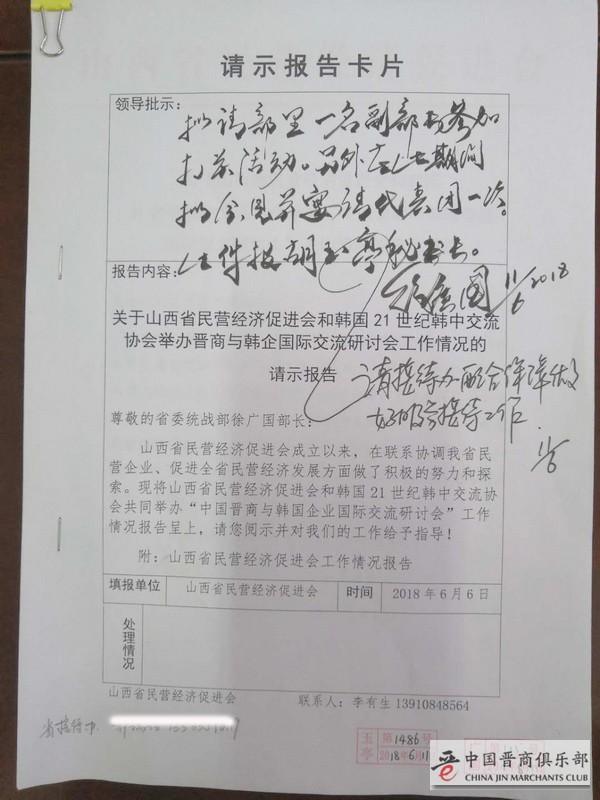 请示报告卡片
领导批示：
拟请部里一名副部长参加
打关活动。另外在
期间
拟会见并宴请代表团一次。
此件报胡玉亭秘书长。
徐广国 11/6 2018
报告内容：
关于山西省民营经济促进会和韩国21世纪韩中交流
协会举办晋商与韩企国际交流研讨会工作情况的
请示报告
请接待办配合
接待工作
尊敬的省委统战部徐广国部长：
山西省民营经济促进会成立以来，在联系协调我省民
营企业、促进全省民营经济发展方面做了积极的努力和探
索。现将山西省民营经济促进会和韩国21世纪韩中交流协
会共同举办“中国晋商与韩国企业国际交流研讨会”工作
情况报告呈上，请您阅示并对我们的工作给予指导！
附：山西省民营经济促进会工作情况报告
填报单位 山西省民营经济促进会 时间 2018年6月6日
处理情况
山西省民营经济促进会 联系人：李有生 13910848564
省接待办
玉亭 第1486号
2018年6月11
中国晋商俱乐部
CHINA JIN MARCHANTS CLUB